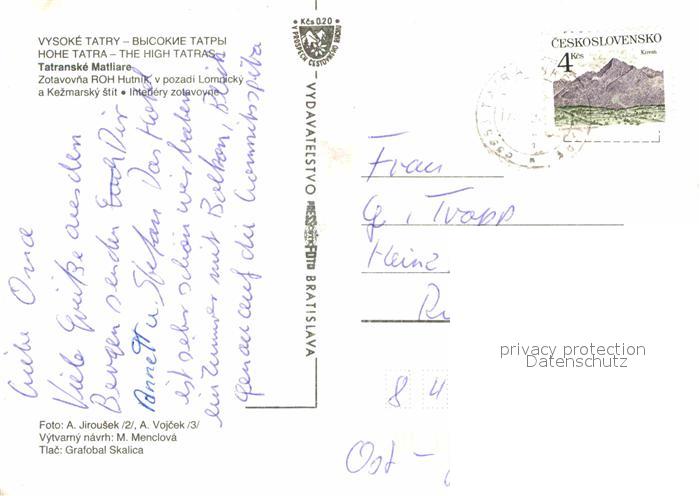 VYSOKÉ TATRY – ВЫСОКИЕ ТАТРЫ
HOHE TATRA – THE HIGH TATRAS
Tatranské Matliare
Zotavovňa ROH Hutník, v pozadí Lomnický
a Kežmarský štít • Interiéry zotavovne
Kčs 0.20
V PROSPECH CESTOVNÉHO RUCHU
ČESKOSLOVENSKO
4 Kčs
Kriváň
VYDAVATEĽSTVO PRESSFOTO BRATISLAVA
Liebe Oma
Viele Grüße aus den
Bergen senden Euch Dir
Annett u. Stefan. Das Hotel
ist sehr schön wir haben
ein Zimmer mit Balkon, Blick
genau auf die Lomnitzspitze
Frau
G. Trapp
Heinz
Ru
8 4
Ost -
privacy protection
Datenschutz
Foto: A. Jiroušek /2/, A. Vojček /3/
Výtvarný návrh: M. Menclová
Tlač: Grafobal Skalica